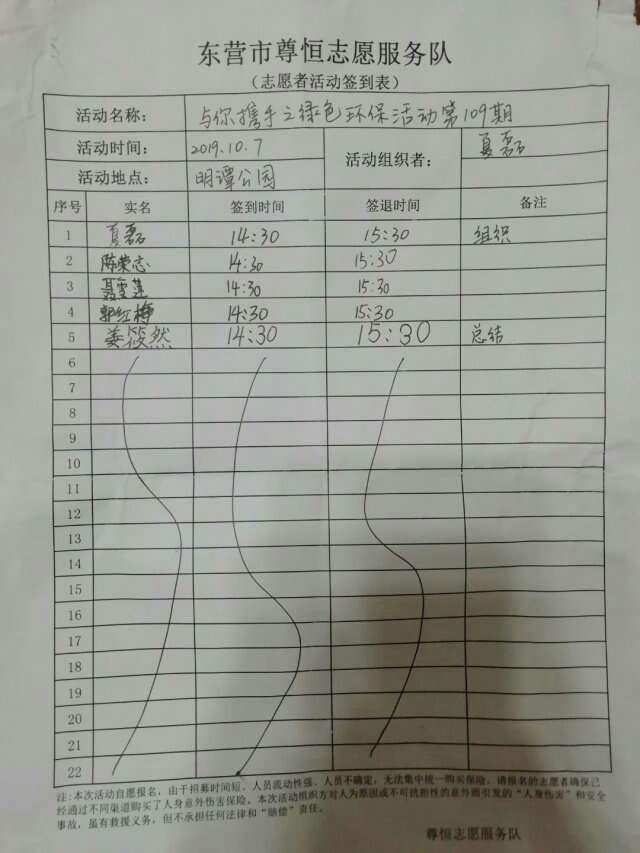 东营市尊恒志愿服务队
（志愿者活动签到表）
活动名称： 与你携手之绿色环保活动第109期
活动时间： 2019.10.7 活动组织者： 夏磊
活动地点： 明潭公园
序号 实名 签到时间 签退时间 备注
1 夏磊 14:30 15:30 组织
2 陈荣志 14:30 15:30
3 聂雪莲 14:30 15:30
4 郭红梅 14:30 15:30
5 姜筱然 14:30 15:30 总结
6
7
8
9
10
11
12
13
14
15
16
17
18
19
20
21
22
注:本次活动自愿报名，由于招募时间短、人员流动性强、人员不确定，无法集中统一购买保险，请报名的志愿者确保已
经通过不同渠道购买了人身意外伤害保险。本次活动组织方对人为原因或不可抗拒性的意外而引发的“人身伤害”和安全
事故，虽有救援义务，但不承担任何法律和“赔偿”责任。
尊恒志愿服务队